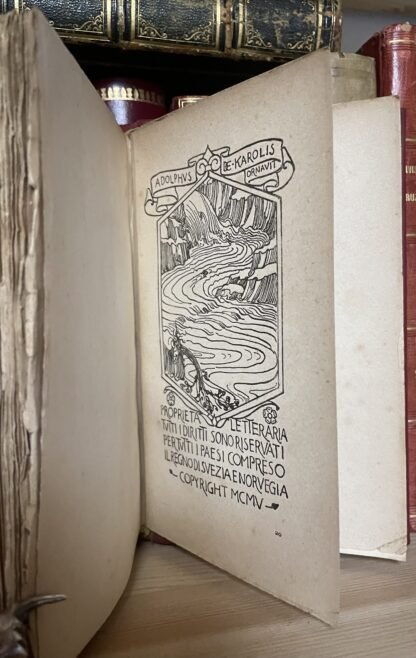 ADOLPHVS DE·KAROLIS
ORNAVIT
PROPRIETA LETTERARIA
TVTTI I DIRITTI SONO RISERVATI
PER TVTTI I PAESI COMPRESO
IL REGNO DI SVEZIA E NORVEGIA
COPYRIGHT MCMV